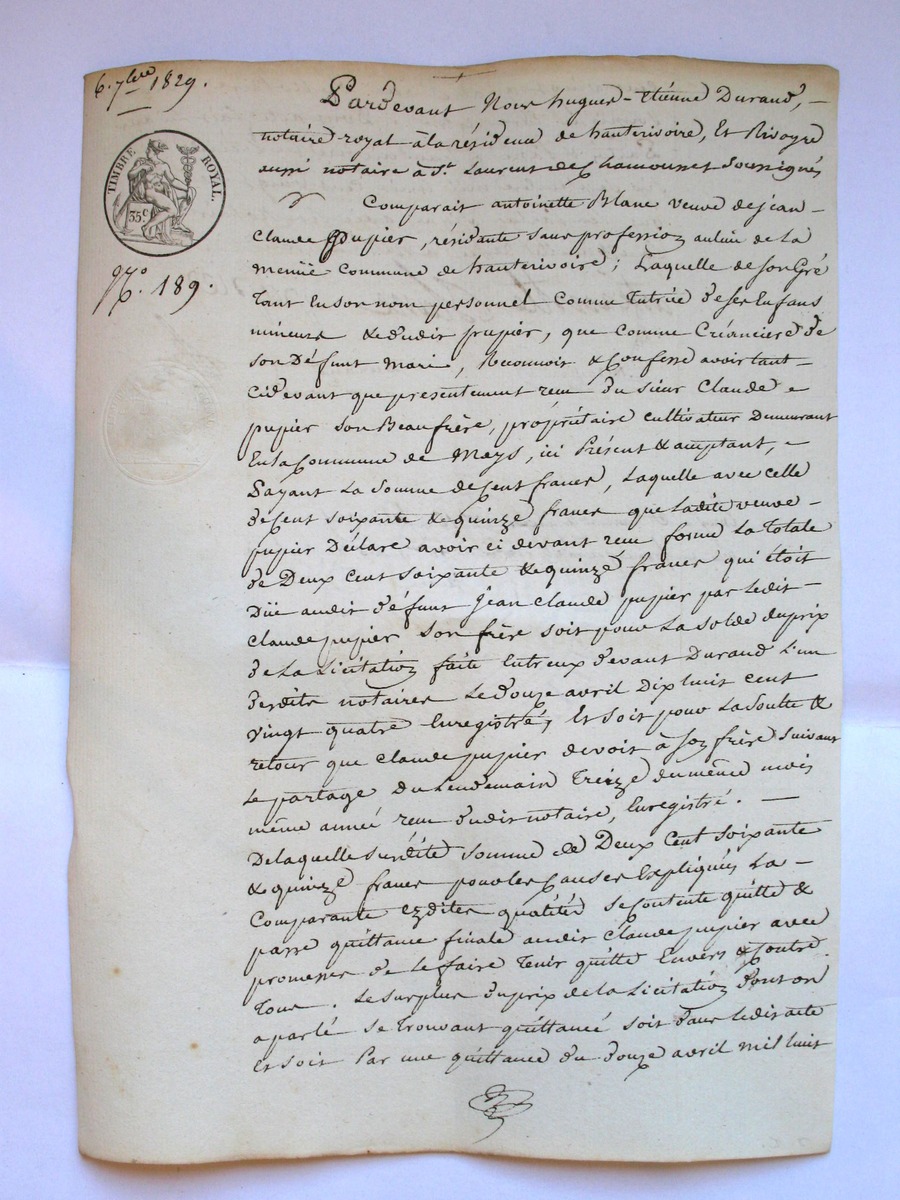 6. 7bre 1829.
TIMBRE ROYAL.
35c
No. 189.
Pardevant Nous hugues-etiénne Durand,
notaire royal à la résidence de hauterivoire, Et Rivoyre
aussi notaire à St. Laurent de Chamousset Soussignés
Comparait antoinette Blanc veuve de jean
Claude pupier, résidante sans profession au lieu de la
même Commune de hauterivoire; Laquelle de son Gré
Tant En son nom personnel Comme Tutrice de ses Enfans
mineurs & dudit pupier, que comme Créanciere de
son Défunt Mari, Reconnoit & Confesse avoir tant
Cidevant que presentement reçu du sieur Claude
pupier son Beaufrère, propriétaire cultivateur Demeurant
En la Commune de Meys, ici Présent & acceptant,
Payant La Somme de Cent francs, Laquelle avec celle
de Cent soixante & quinze francs que Ladite veuve
pupier Déclare avoir ci devant reçu forme La Totale
de Deux cent soixante & quinze francs qui étoit
Düe audit défunt Jean Claude pupier par Ledit
Claude pupier son frère soit pour La solde du prix
de La Licitation faite Entreux devant Durand L'un
desdits notaires Le douze avril Dix huit cent
vingt quatre Enregistré, Et soit pour La Soulte &
retour que Claude pupier devoit à son frère Suivant
Le partage du Lendemain Treize du même mois
même année reçu dudit notaire, Enregistré.
De laquelle susdite somme de Deux Cent soixante
& quinze francs pour les Causes Expliquées La
Comparante ezdites qualités se Contente quitte &
passe quittance finale audit Claude pupier avec
promesse de Le faire Tenir quitte Envers & Contre
Tous. Le surplus du prix de la Licitation dont on
a parlé se Trouvant quittancé soit dans Ledit acte
Et soit Par une quittance du douze avril mil huit